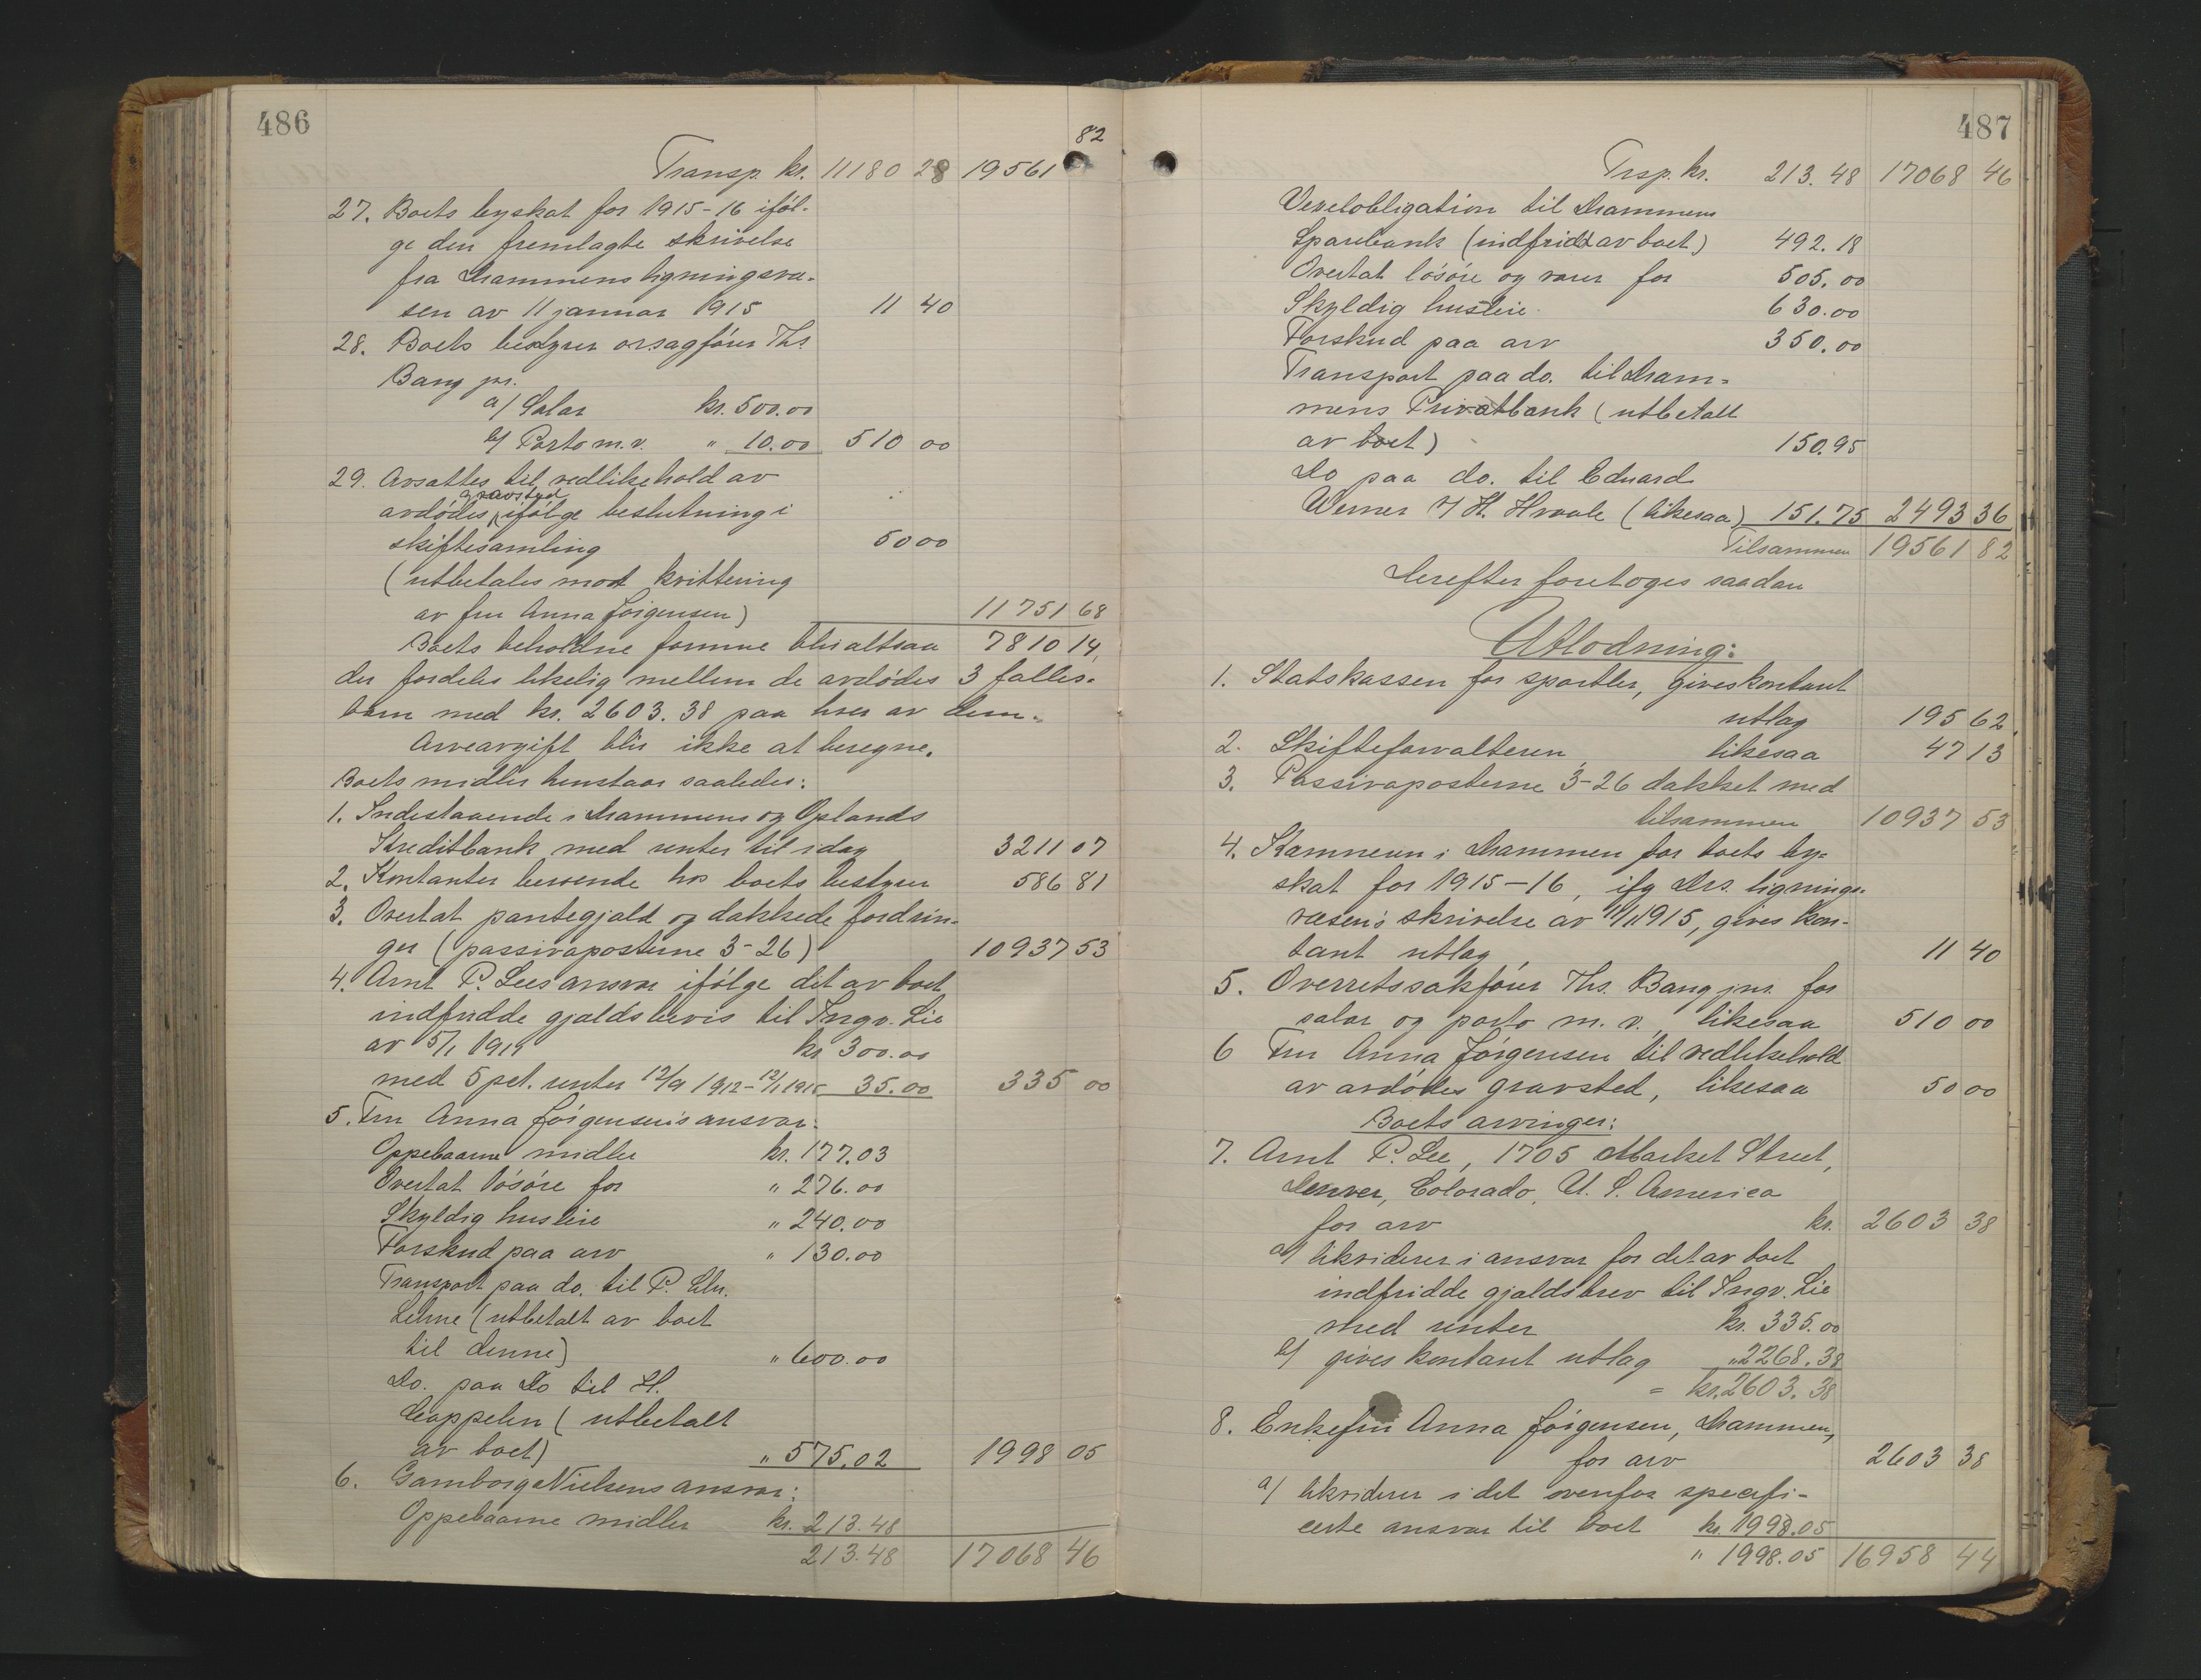 486
82
Transp. kr. 11180 28 19561
27. Boets byskat for 1915-16 iføl-
ge den fremlagte skrivelse
fra Drammens ligningsvæ-
sen av 11 januar 1915 11 40
28. Boets bestyrer orsagfører Ths.
Bang jnr.
a/ Salar kr. 500.00
b/ Porto m.v. " 10.00 510 00
29. Avsattes til vedlikehold av
gravsted
avdødes ifølge beslutning i
skiftesamling 50 00
(utbetales mot kvittering
av fru Anna Jørgensen) 11751 68
Boets beholdne formue blir altsaa 7810 14,
der fordeles likelig mellem de avdødes 3 fælles-
barn med kr. 2603.38 paa hver av dem.
Arveavgift blir ikke at beregne.
Boets midler henstaar saaledes:
1. Indestaaende i Drammens og Oplands
Kreditbank med renter til idag 3211 07
2. Kontanter beroende hos boets bestyrer 586 81
3. Overtat pantegjæld og dækkede fordrin-
ger (passivaposterne 3-26) 10937 53
4. Arnt P. Lees ansvar ifølge det av boet
indfridde gjældsbevis til Ingv. Lie
av 5/1 1914 kr 300.00
med 5 pct. renter 12/9 1912-12/1 1915 35.00 335 00
5. Fru Anna Jørgensens ansvar:
Oppebaarne midler kr. 177.03
Overtat løsøre for " 276.00
Skyldig husleie " 240.00
Forskud paa arv " 130.00
Transport paa do. til P. Chr.
Lehne (utbetalt av boet
til denne) " 600.00
Do. paa Do til H.
Cappelen (utbetalt
av boet) " 575.02 1998 05
6. Gamborg Nielsens ansvar:
Oppebaarne midler kr. 213.48
213.48 17068 46
487
Trsp. kr. 213.48 17068 46
Vexelobligation til Drammens
Sparebank (indfridt av boet) 492.18
Overtat løsøre og varer for 505.00
Skyldig husleie 630.00
Forskud paa arv 350.00
Transport paa do. til Dram-
mens Privatbank (utbetalt
av boet) 150.95
Do paa do. til Edvard
Werner v/ H. Hvaale (likesaa) 151.75 2493 36
Tilsammen 19561 82
Derefter foretoges saadan
Utlodning:
1. Statskassen for sportler, gives kontant
utlag 195 62
2. Skifteforvalteren likesaa 47 13
3. Passivaposterne 3-26 dækket med
tilsammen 10937 53
4. Kæmneren i Drammen for boets by-
skat for 1915-16, ifg Drs. lignings-
væsens skrivelse av 11/1 1915, gives kon-
tant utlag 11 40
5. Overretssakfører Ths. Bang jnr. for
salar og porto m.v., likesaa 510 00
6 Fru Anna Jørgensen til vedlikehold
av avdødes gravsted, likesaa 50 00
Boets arvinger:
7. Arnt P. Lee, 1705 Market Street,
Denver, Colorado, U. S. America
for arv kr. 2603 38
a/ likviderer i ansvar for det av boet
indfridde gjældsbrev til Ingv. Lie
med renter kr. 335.00
b/ gives kontant utlag " 2268.38
= kr. 2603.38
8. Enkefru Anna Jørgensen, Drammen,
for arv 2603 38
a/ likviderer i det ovenfor specifi-
certe ansvar til boet kr. 1998.05
" 1998.05 16958 44